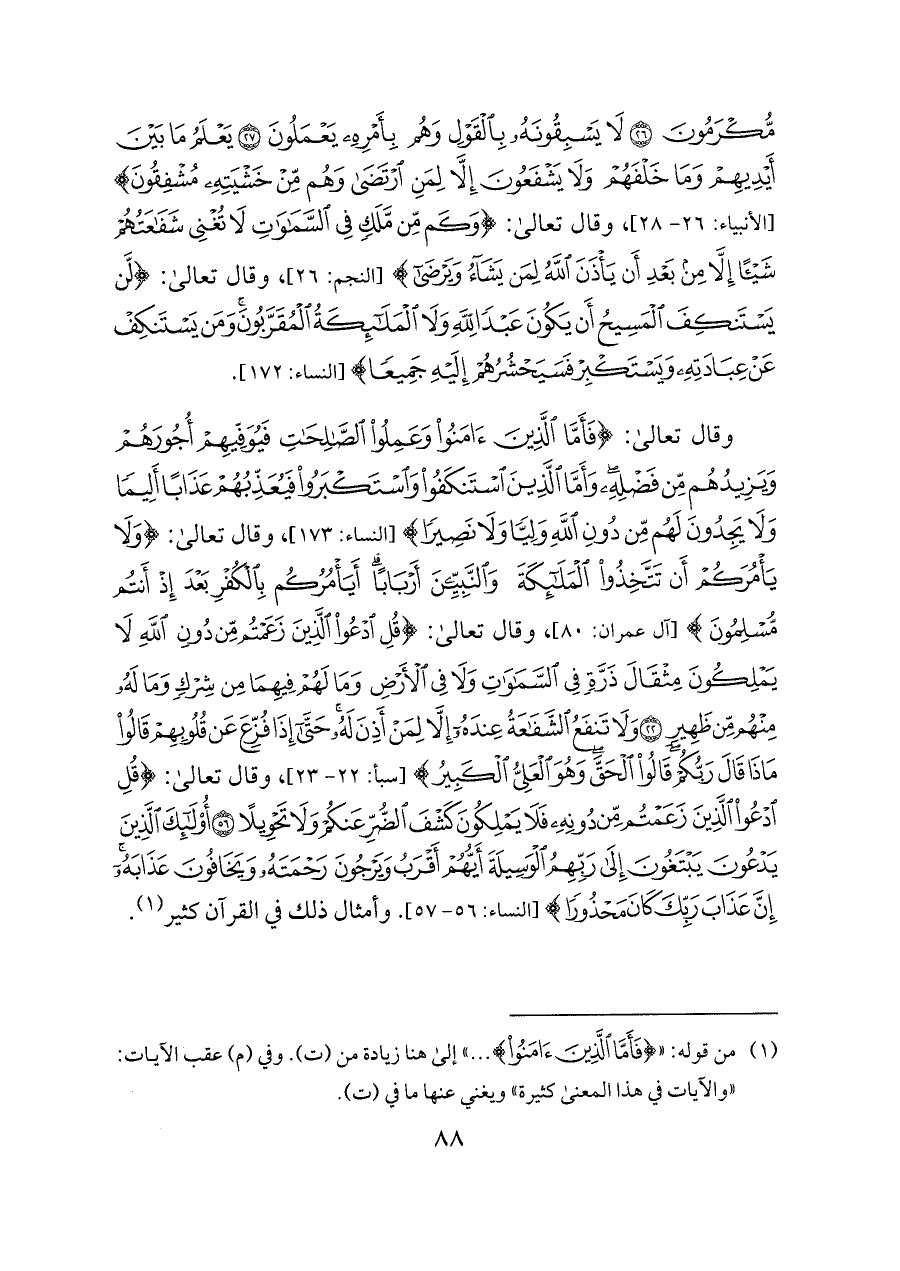 مُّكْرَمُونَ ﴿٢٦﴾ لَا يَسْبِقُونَهُۥ بِٱلْقَوْلِ وَهُم بِأَمْرِهِۦ يَعْمَلُونَ ﴿٢٧﴾ يَعْلَمُ مَا بَيْنَ
أَيْدِيهِمْ وَمَا خَلْفَهُمْ وَلَا يَشْفَعُونَ إِلَّا لِمَنِ ٱرْتَضَىٰ وَهُم مِّنْ خَشْيَتِهِۦ مُشْفِقُونَ﴾
[الأنبياء: ٢٦- ٢٨]، وقال تعالىٰ: ﴿وَكَم مِّن مَّلَكٍ فِى ٱلسَّمَـٰوَٰتِ لَا تُغْنِى شَفَـٰعَتُهُمْ
شَيْـًٔا إِلَّا مِنۢ بَعْدِ أَن يَأْذَنَ ٱللَّهُ لِمَن يَشَآءُ وَيَرْضَىٰٓ﴾ [النجم: ٢٦]، وقال تعالىٰ: ﴿لَّن
يَسْتَنكِفَ ٱلْمَسِيحُ أَن يَكُونَ عَبْدًا لِّلَّهِ وَلَا ٱلْمَلَـٰٓئِكَةُ ٱلْمُقَرَّبُونَ ۚ وَمَن يَسْتَنكِفْ
عَنْ عِبَادَتِهِۦ وَيَسْتَكْبِرْ فَسَيَحْشُرُهُمْ إِلَيْهِ جَمِيعًا﴾ [النساء: ١٧٢].
وقال تعالىٰ: ﴿فَأَمَّا ٱلَّذِينَ ءَامَنُوا۟ وَعَمِلُوا۟ ٱلصَّـٰلِحَـٰتِ فَيُوَفِّيهِمْ أُجُورَهُمْ
وَيَزِيدُهُم مِّن فَضْلِهِۦ ۖ وَأَمَّا ٱلَّذِينَ ٱسْتَنكَفُوا۟ وَٱسْتَكْبَرُوا۟ فَيُعَذِّبُهُمْ عَذَابًا أَلِيمًا
وَلَا يَجِدُونَ لَهُم مِّن دُونِ ٱللَّهِ وَلِيًّا وَلَا نَصِيرًا﴾ [النساء: ١٧٣]، وقال تعالىٰ: ﴿وَلَا
يَأْمُرَكُمْ أَن تَتَّخِذُوا۟ ٱلْمَلَـٰٓئِكَةَ وَٱلنَّبِيِّـۧنَ أَرْبَابًا ۗ أَيَأْمُرُكُم بِٱلْكُفْرِ بَعْدَ إِذْ أَنتُم
مُّسْلِمُونَ﴾ [آل عمران: ٨٠]، وقال تعالىٰ: ﴿قُلِ ٱدْعُوا۟ ٱلَّذِينَ زَعَمْتُم مِّن دُونِ ٱللَّهِ لَا
يَمْلِكُونَ مِثْقَالَ ذَرَّةٍ فِى ٱلسَّمَـٰوَٰتِ وَلَا فِى ٱلْأَرْضِ وَمَا لَهُمْ فِيهِمَا مِن شِرْكٍ وَمَا لَهُۥ
مِنْهُم مِّن ظَهِيرٍ ﴿٢٢﴾ وَلَا تَنفَعُ ٱلشَّفَـٰعَةُ عِندَهُۥٓ إِلَّا لِمَنْ أَذِنَ لَهُۥ ۚ حَتَّىٰٓ إِذَا فُزِّعَ عَن قُلُوبِهِمْ قَالُوا۟
مَاذَا قَالَ رَبُّكُمْ ۖ قَالُوا۟ ٱلْحَقَّ ۖ وَهُوَ ٱلْعَلِىُّ ٱلْكَبِيرُ﴾ [سبأ: ٢٢- ٢٣]، وقال تعالىٰ: ﴿قُلِ
ٱدْعُوا۟ ٱلَّذِينَ زَعَمْتُم مِّن دُونِهِۦ فَلَا يَمْلِكُونَ كَشْفَ ٱلضُّرِّ عَنكُمْ وَلَا تَحْوِيلًا ﴿٥٦﴾ أُو۟لَـٰٓئِكَ ٱلَّذِينَ
يَدْعُونَ يَبْتَغُونَ إِلَىٰ رَبِّهِمُ ٱلْوَسِيلَةَ أَيُّهُمْ أَقْرَبُ وَيَرْجُونَ رَحْمَتَهُۥ وَيَخَافُونَ عَذَابَهُۥٓ ۚ
إِنَّ عَذَابَ رَبِّكَ كَانَ مَحْذُورًا﴾ [النساء: ٥٦- ٥٧]. وأمثال ذلك في القرآن كثير(١).
(١) من قوله: «﴿فَأَمَّا ٱلَّذِينَ ءَامَنُوا۟﴾...» إلىٰ هنا زيادة من (ت). وفي (م) عقب الآيات:
«والآيات في هذا المعنىٰ كثيرة» ويغني عنها ما في (ت).
٨٨